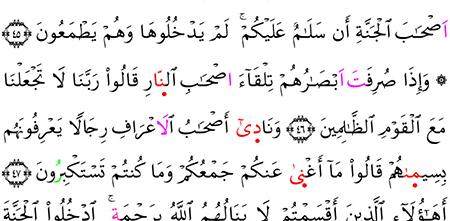 اَصْحَٰبَ الْجَنَّةِ أَن سَلَٰمٌ عَلَيْكُمْ ۚ لَمْ يَدْخُلُوهَا وَهُمْ يَطْمَعُونَ ﴿٤٥﴾
۞ وَإِذَا صُرِفَتَ اَبْصَٰرُهُمْ تِلْقَآءَ اصْحَٰبِ النّ۪ارِ قَالُوا رَبَّنَا لَا تَجْعَلْنَا
مَعَ الْقَوْمِ الظَّٰلِمِينَ ﴿٤٦﴾ وَنَاد۪ىٰٓ أَصْحَٰبُ الَاعْرَافِ رِجَالًا يَعْرِفُونَهُم
بِسِيم۪ىٰهُمْ قَالُوا مَآ أَغْن۪ىٰ عَنكُمْ جَمْعُكُمْ وَمَا كُنتُمْ تَسْتَكْبِرُونَ ﴿٤٧﴾
أَهَٰٓؤُلَآءِ الَّذِينَ أَقْسَمْتُمْ لَا يَنَالُهُمُ اللَّهُ بِرَحْمَةٍ ۚ ادْخُلُوا الْجَنَّةَ